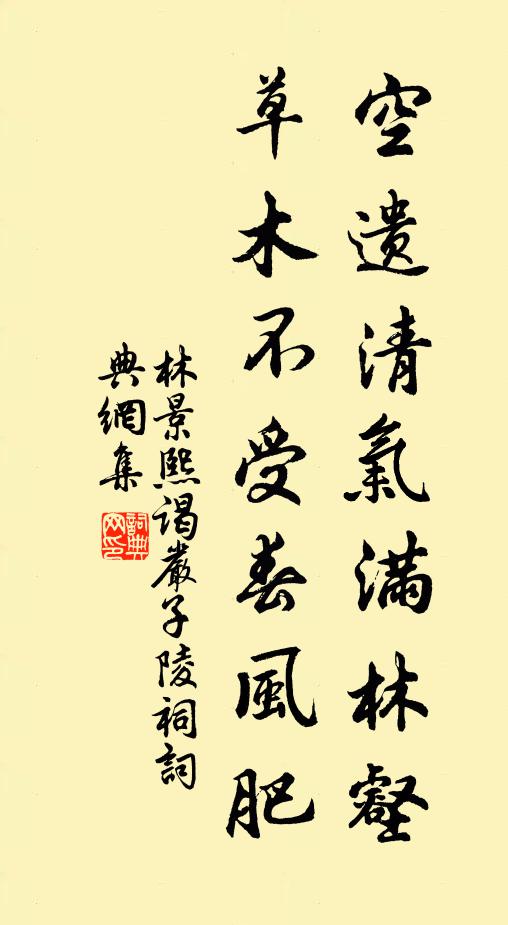 空遺清氣滿林壑
草木不受春風肥
林景熙謁嚴子陵祠詞
典網集
詞典網印